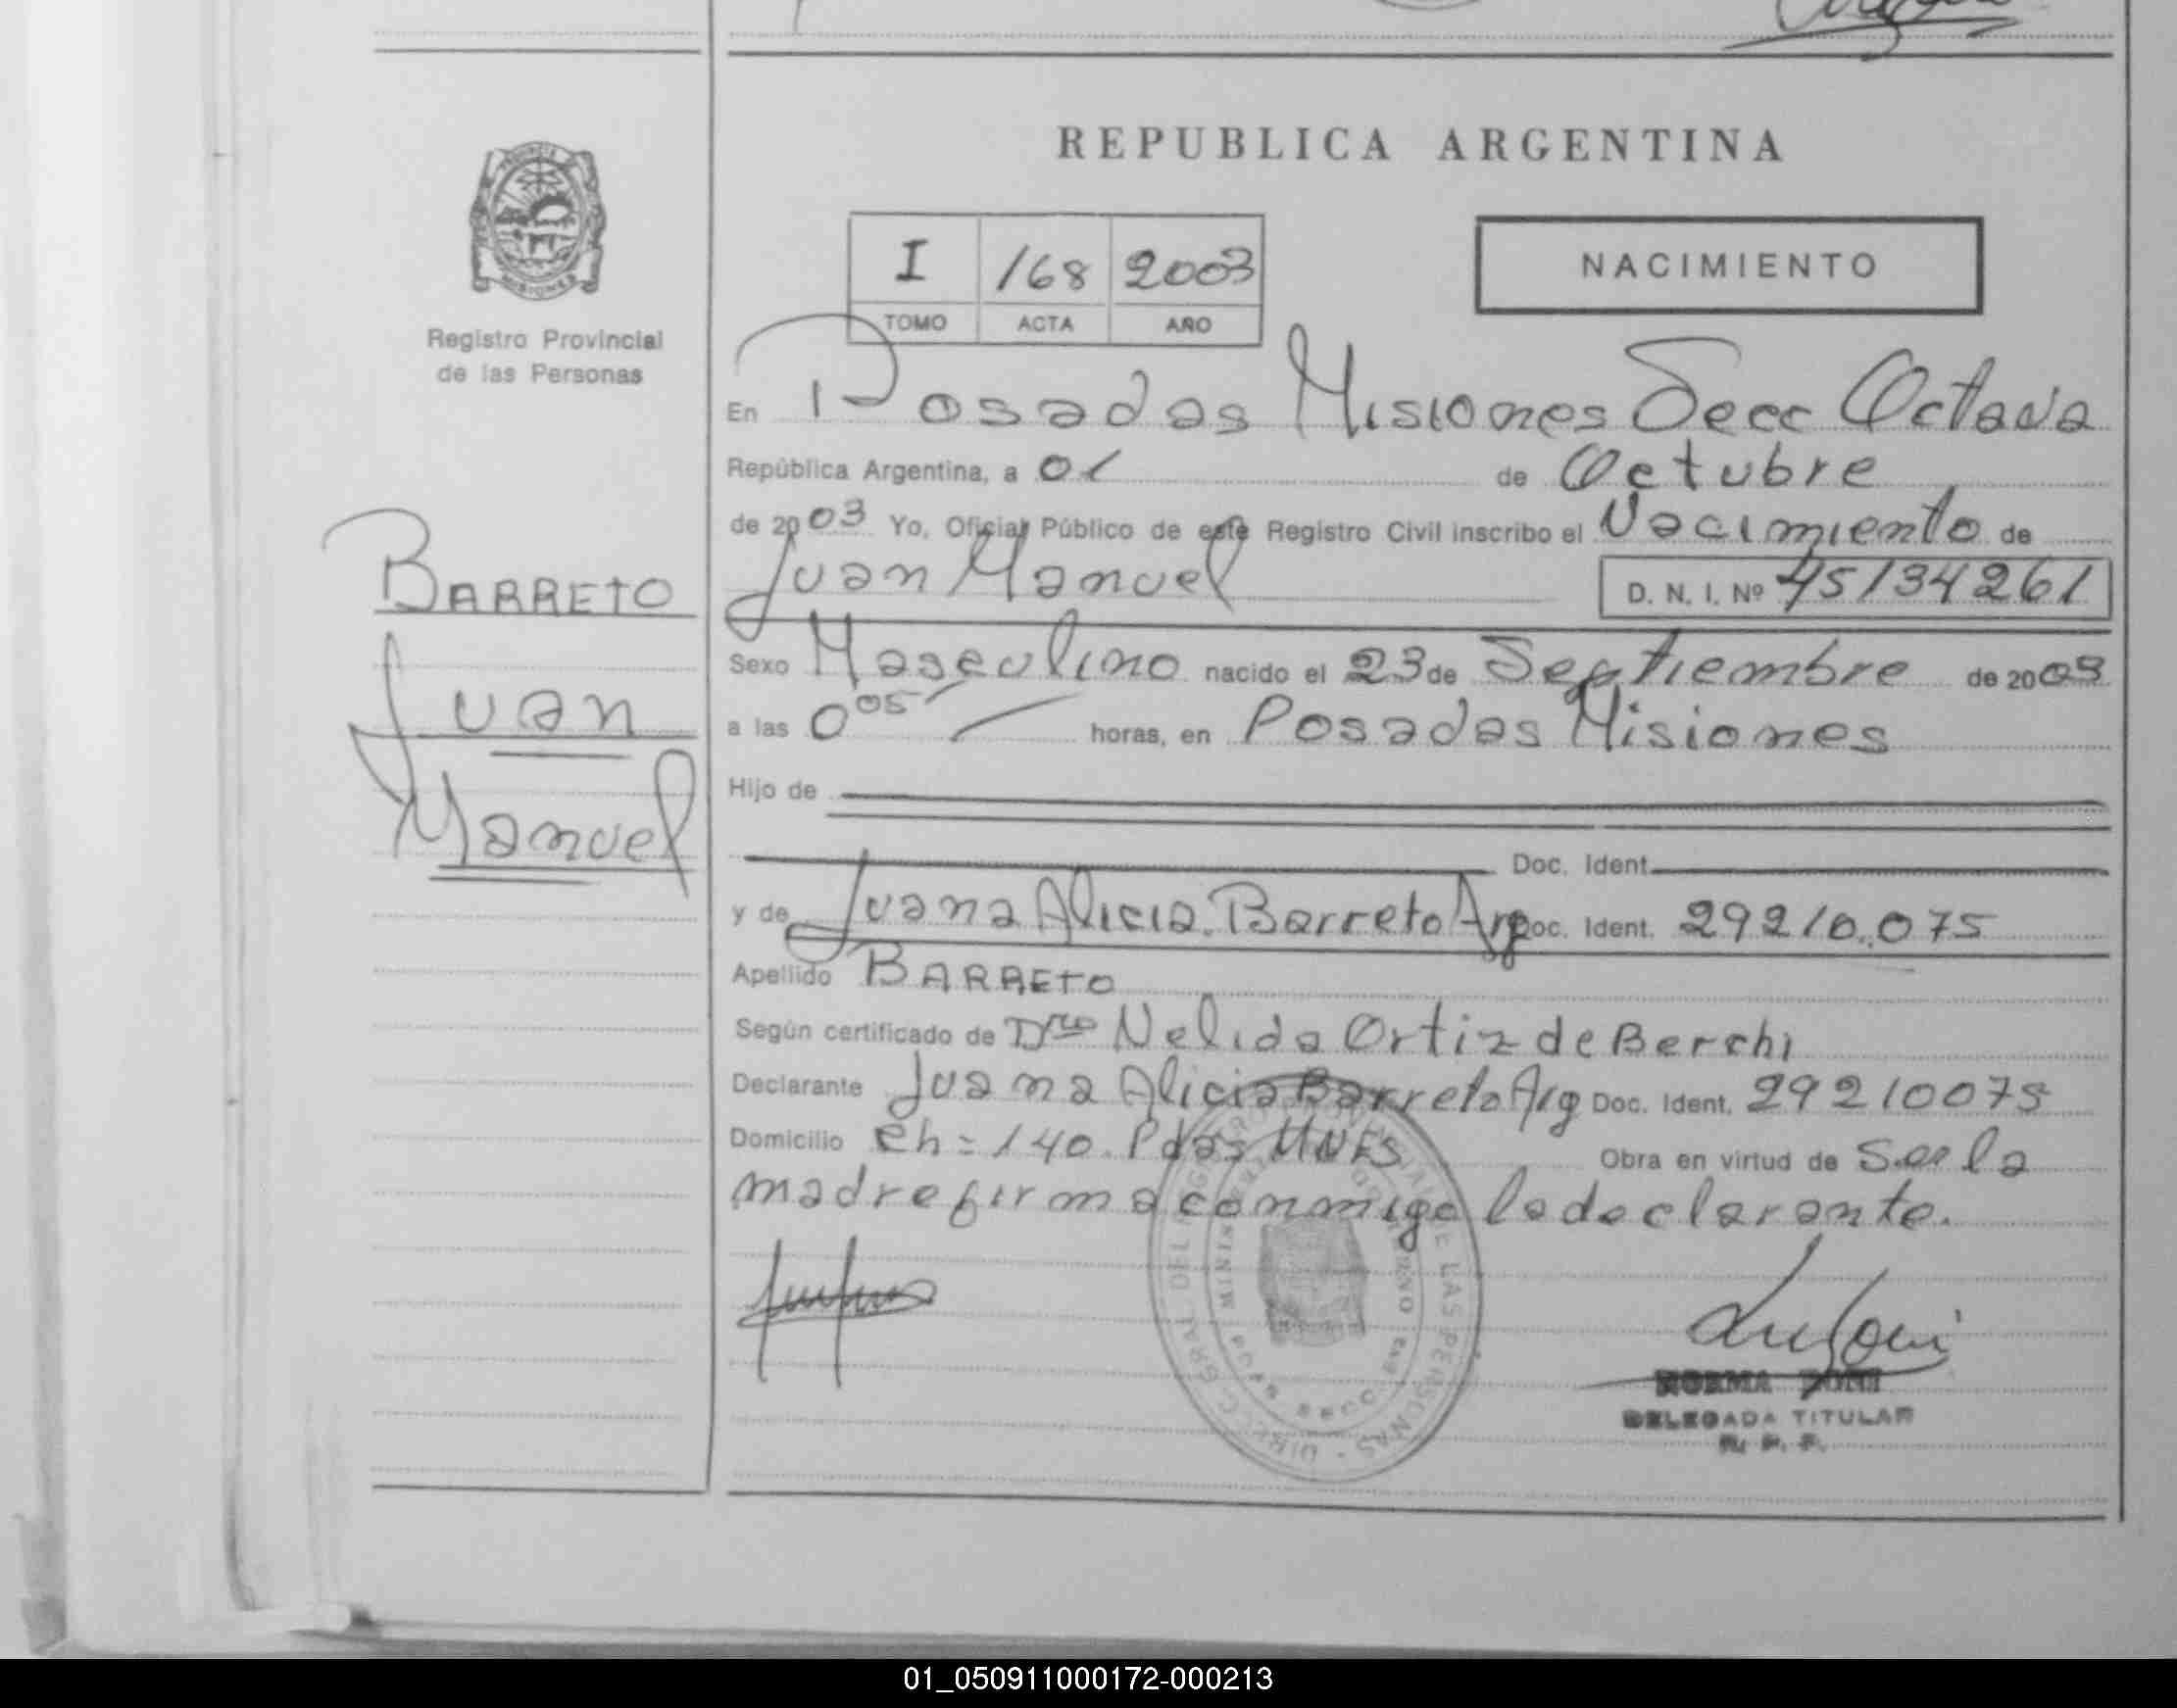 REPUBLICA ARGENTINA
PROVINCIA DE
MISIONES
Registro Provincial
de las Personas
I 168 2003
TOMO ACTA AÑO
NACIMIENTO
En Posadas Misiones Secc Octava
República Argentina, a 01 de Octubre
de 2003 Yo, Oficial Público de este Registro Civil inscribo el Nacimiento de
Juan Manuel D. N. I. Nº 45134261
BARRETO
Juan
Manuel
Sexo Masculino nacido el 23 de Septiembre de 2003
a las 0 05 horas, en Posadas Misiones
Hijo de
Doc. Ident.
y de Juana Alicia Barreto Arg Doc. Ident. 29210.075
Apellido BARRETO
Según certificado de Dra Nelida Ortiz de Berchi
Declarante Juana Alicia Barreto Arg Doc. Ident. 29210075
Domicilio Ch = 140. Pdas MNES Obra en virtud de Ser la
madre firma conmigo la declarante.
DIRECC GRAL DEL REGISTRO PROVINCIAL DE LAS PERSONAS
NORMA
DELEGADA TITULAR
R. P. P.
01_050911000172-000213